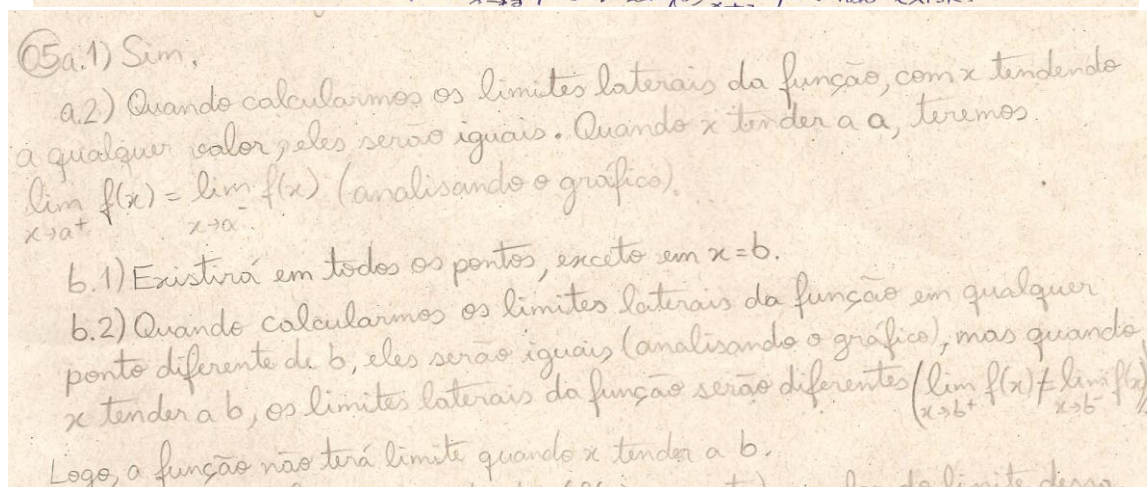 05a.1) Sim.
a.2) Quando calcularmos os limites laterais da função, com x tendendo
a qualquer valor, eles serão iguais. Quando x tender a a, teremos
lim x→a⁺ f(x) = lim x→a⁻ f(x) (analisando o gráfico).
b.1) Existirá em todos os pontos, exceto em x=b.
b.2) Quando calcularmos os limites laterais da função em qualquer
ponto diferente de b, eles serão iguais (analisando o gráfico), mas quando
x tender a b, os limites laterais da função serão diferentes (lim x→b⁺ f(x) ≠ lim x→b⁻ f(x))
Logo, a função não terá limite quando x tender a b.
do limite dessa